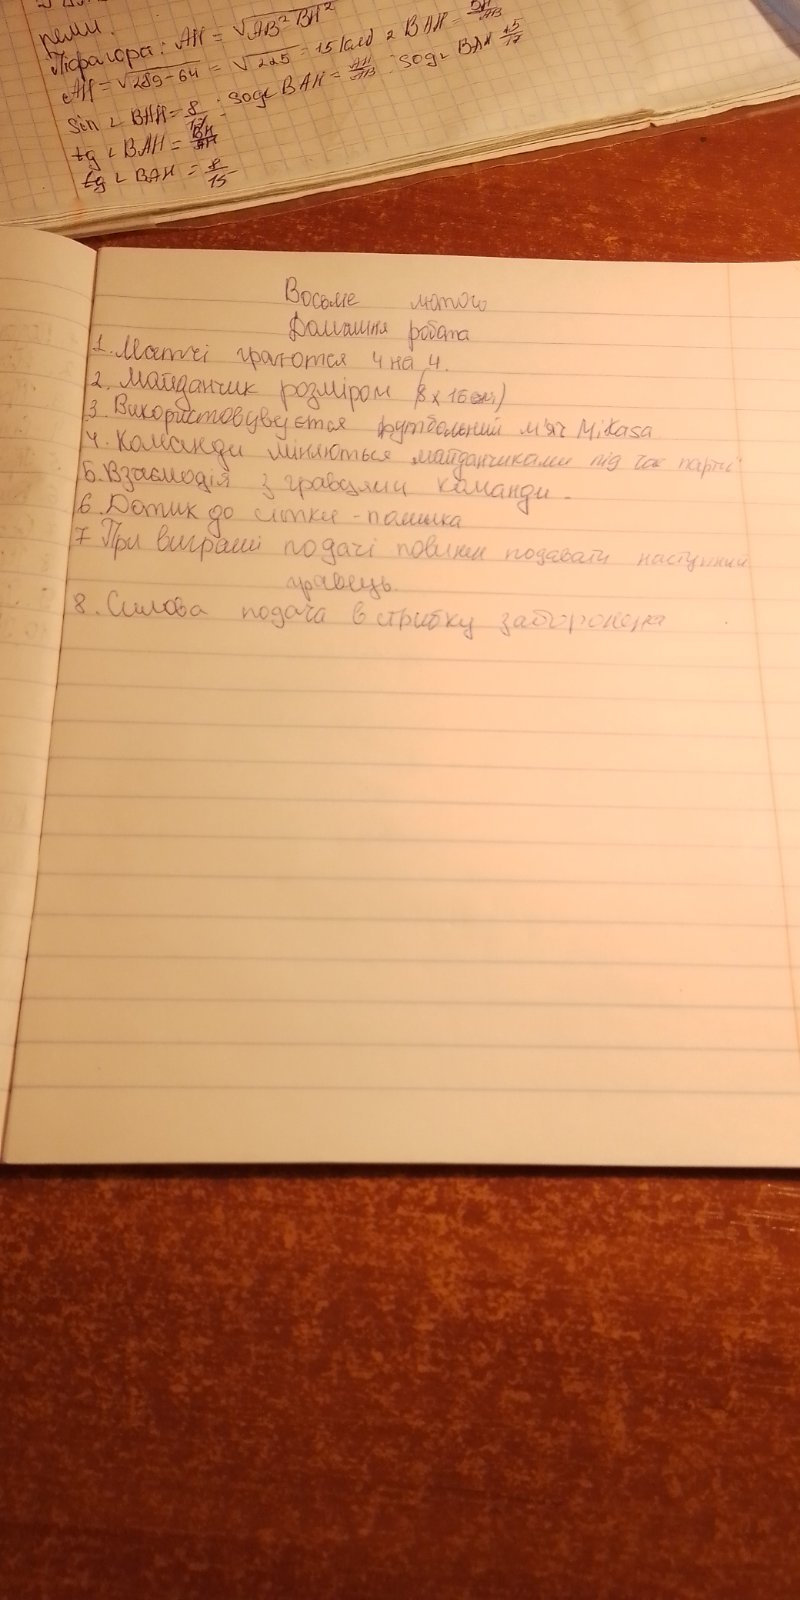 реми.
Піфагора: AH = √AB² BH²
AH = √289-64 = √225 = 15
sin ∠ BAH = 8/17
∠ BAH = AH/AB
tg ∠ BAH = BH/AH
BAH 15/17
tg ∠ BAH = 8/15
Восьме лютого
Домашня робота
1. Матчі граються 4 на 4.
2. Майданчик розміром (8 х 16 )
3. Використовувується футбольний м'яч Mikasa
4. Команди міняються майданчиками під час партії
5. Взаємодія з гравцями команди.
6. Дотик до сітки - помилка
7 При виграші подачі повинен подавати наступний
гравець.
8. Силова подача в стрибку заборонена